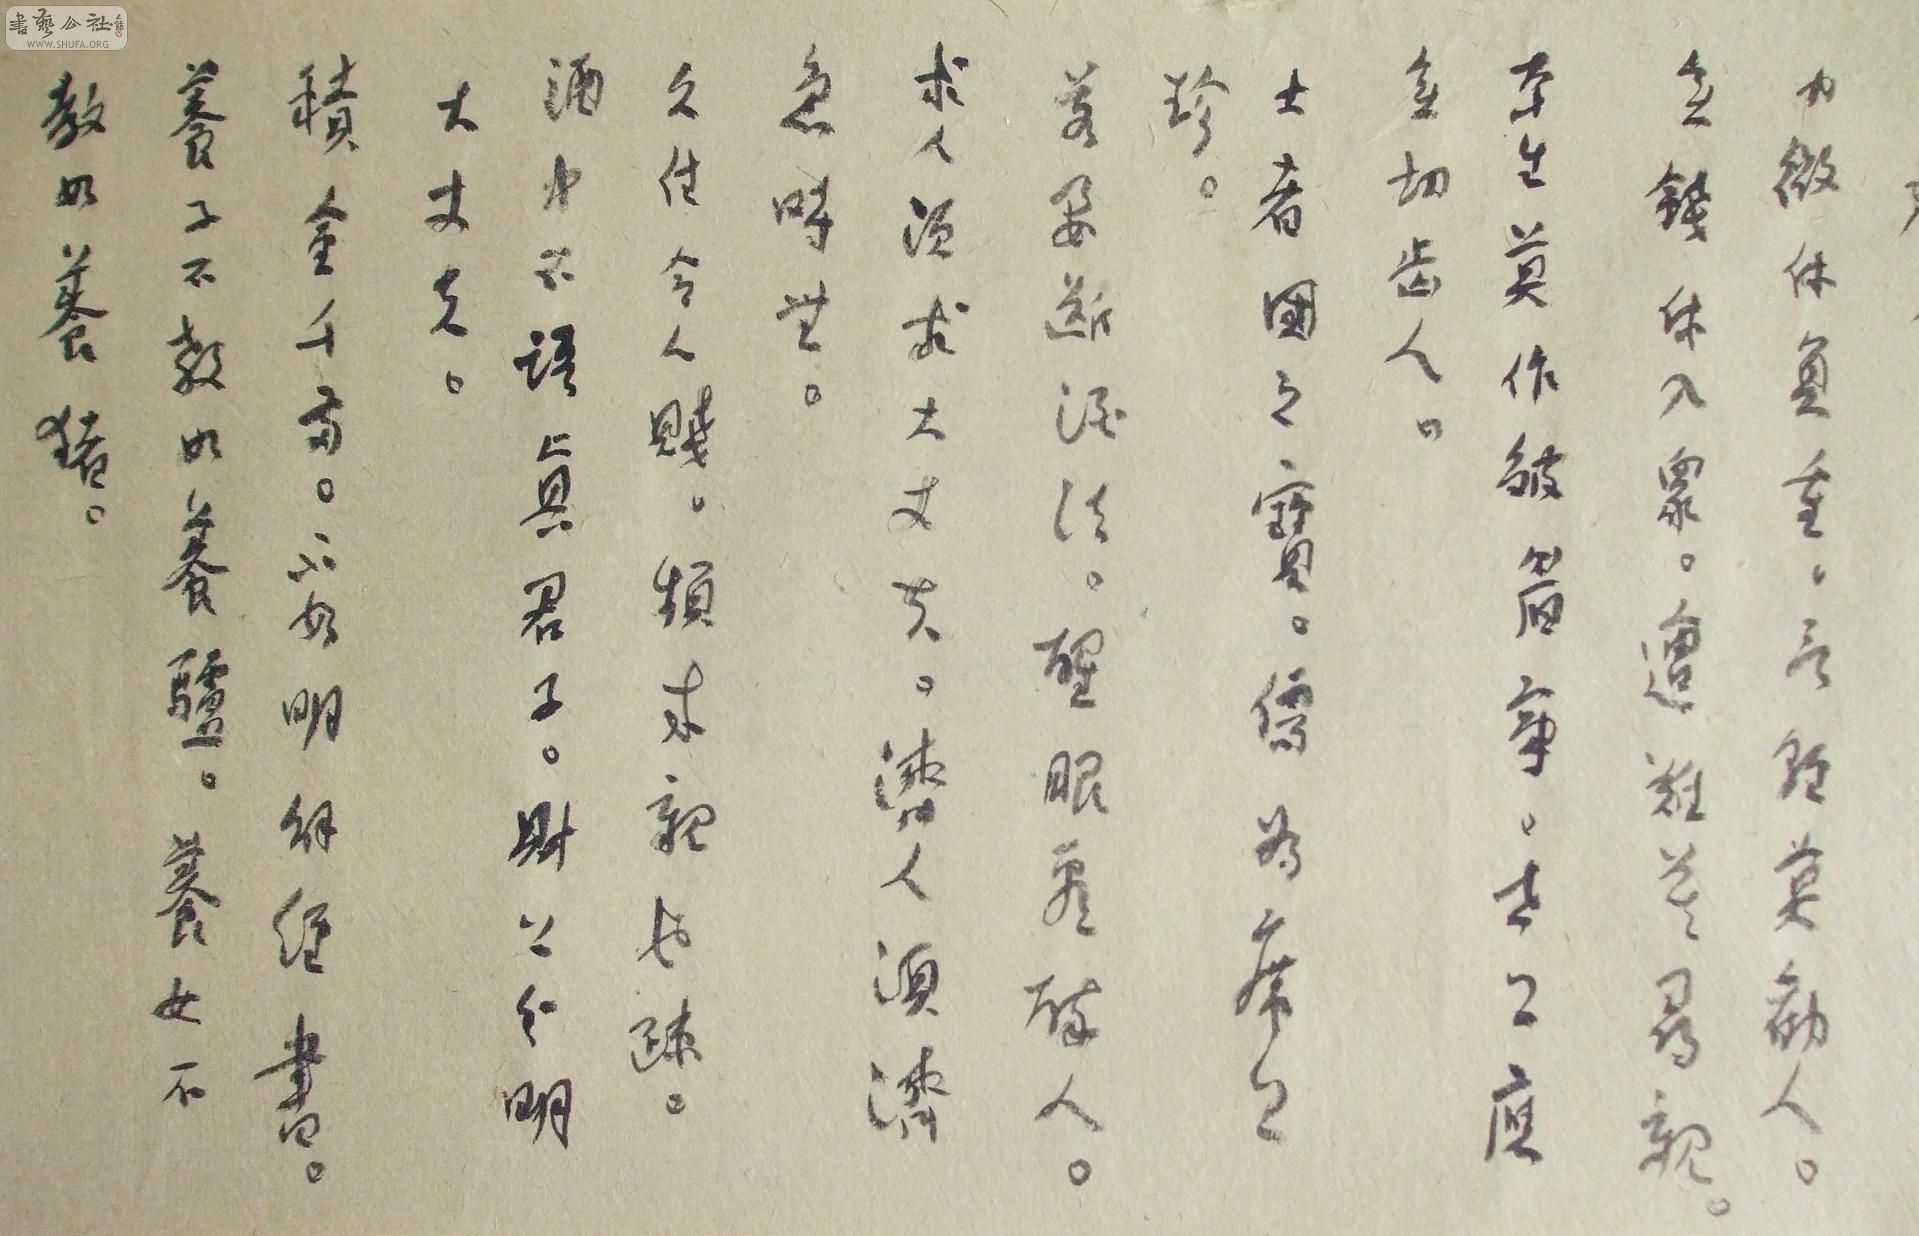 力微休負重。言輕莫勸人。
無錢休入眾。遭難莫尋親。
平生莫作皺眉事。世上應
無切齒人。
士者國之寶。儒為席上
珍。
若要斷酒法。醒眼看醉人。
求人須求大丈夫。濟人須濟
急時無。
久住令人賤。頻來親也疎。
酒中不語真君子。財上分明
大丈夫。
積金千兩。不如明解經書。
養子不教如養驢。養女不
教如養猪。
書藝公社
WWW.SHUFA.ORG